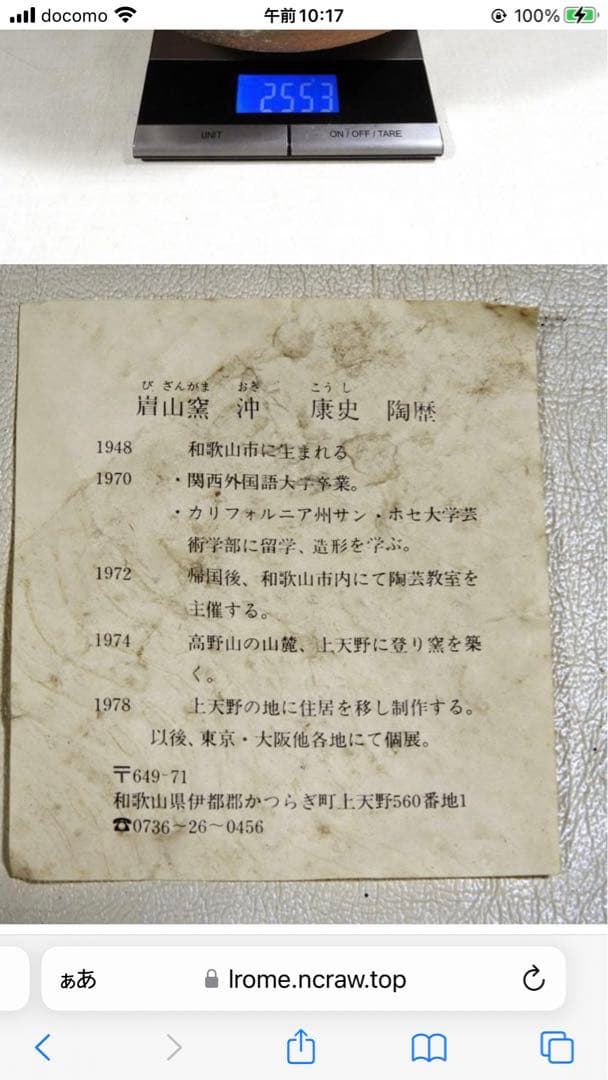 docomo 午前10:17 100%
2553
UNIT ON / OFF / TARE
び ざんがま おき こう し
眉山窯 沖 康史 陶歴
1948 和歌山市に生まれる
1970 ・関西外国語大学卒業。
・カリフォルニア州サン・ホセ大学芸
術学部に留学、造形を学ぶ。
1972 帰国後、和歌山市内にて陶芸教室を
主催する。
1974 高野山の山麓、上天野に登り窯を築
く。
1978 上天野の地に住居を移し制作する。
以後、東京・大阪他各地にて個展。
〒649-71
和歌山県伊都郡かつらぎ町上天野560番地1
☎0736〜26〜0456
ぁあ lrome.ncraw.top